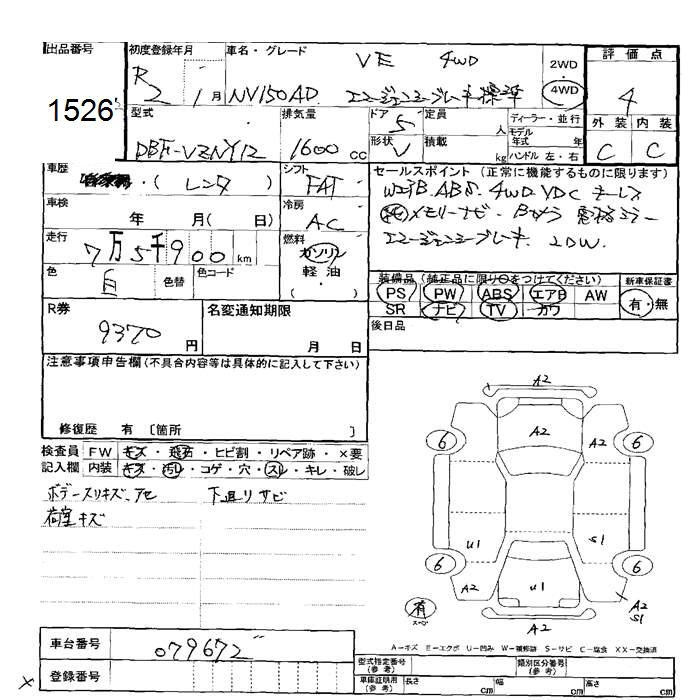 出品番号
1526
初度登録年月
R 2 年 1 月
車名・グレード
VE 4WD
NV150AD エマージェンシーブレーキ標準
2WD
・
4WD
評価点
4
外装 内装
C C
型式
DBF-VZNY12
排気量
1600 cc
ドア 5
形状 V
定員 人
積載 kg
ディーラー・並行
モデル年式 年
ハンドル 左・右
車歴
・( レンタ )
シフト
FAT
車検
年 月( 日)
冷房
AC
走行
7万5千900 km
燃料
ガソリン
軽・油
( ・ )
色
白
色替
色コード
セールスポイント(正常に機能するものに限ります)
WエアB. ABS. 4WD. VDC キーレス
純メモリーナビ・Bカメラ 電格ミラー
エマージェンシーブレーキ. 2DW.
装備品(純正品に限り○をつけてください)
PS PW ABS エアB AW
SR ナビ TV カワ
新車保証書
有・無
後日品
R券
9370 円
名変通知期限
月 日
注意事項申告欄(不具合内容等は具体的に記入して下さい)
修復歴 有 〔箇所 〕
検査員 FW キズ・飛石・ヒビ割・リペア跡・×要
記入欄 内装 キズ・汚レ・コゲ・穴・スレ・キレ・破レ
ボデースリキズ、アセ 下廻りサビ
荷室キズ
A2
A2 A2
6 6
U1 S1
6 6
A2 U1
A2
S1
有
スペア
A2
A－キズ E－エクボ U－凹み W－補修跡 S－サビ C－腐食 XX－交換済
車台番号
079672
登録番号
×
型式指定番号
(参考)
類別区分番号
(参考)
車庫証明用
(参考)
長さ cm 幅 cm 高さ cm